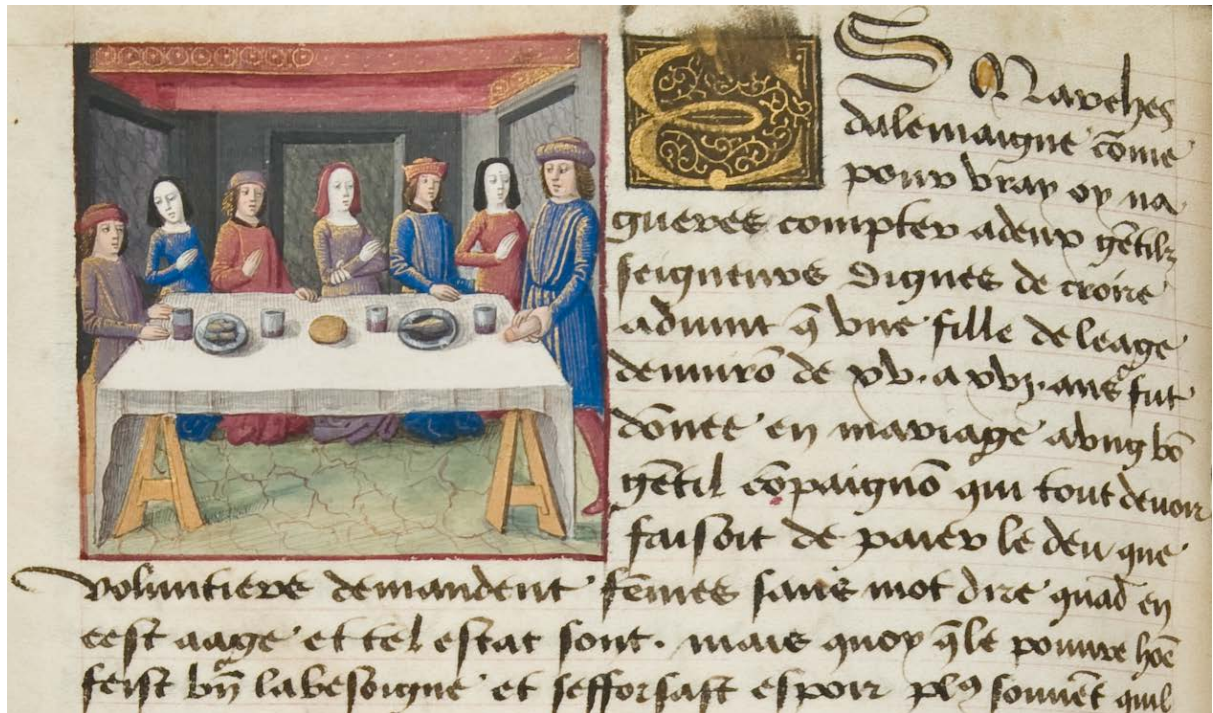 ES Marches
dalemaigne cōme
pour vray oy na
gueres compter a deux gētilz
seigneurs dignes de croire
aduint q̄ vne fille de leage
denuirō de xv. a xvi. ans fut
dōnee en mariage a vng bō
gētil cōpaignō qui tout deuoir
faisoit de paier le deu que
voluntiers demandent fēmes sans mot dire quād en
cest aage et tel estat sont. mais quoy q̄ le pouure hōe
feist bn̄ la besoigne et sefforsast espoir pl9 souuēt quil